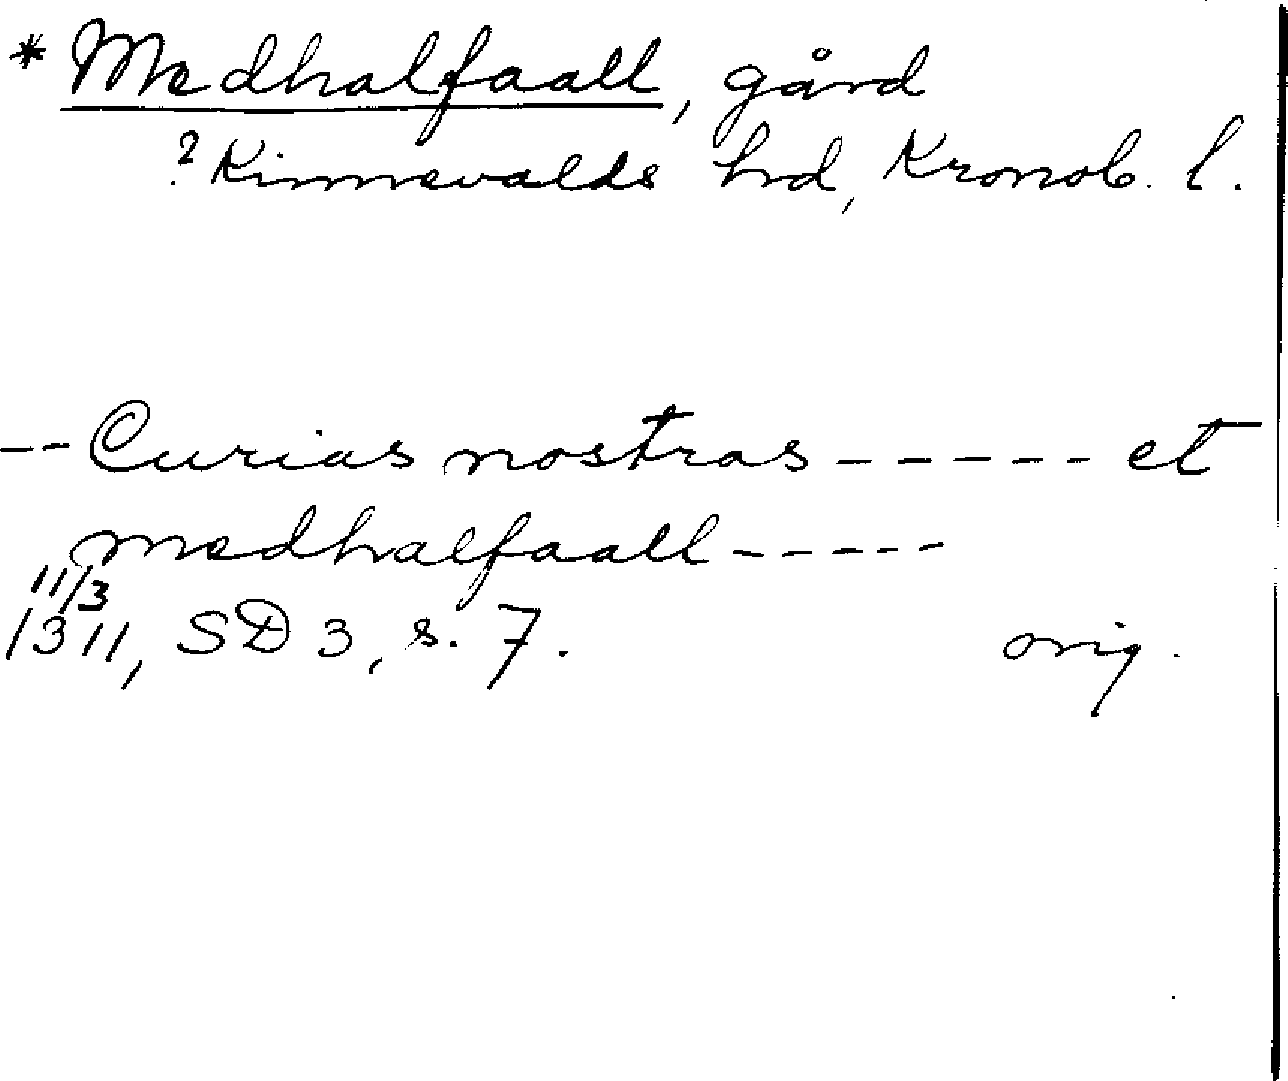 * Medhalfaall, gård
? Kinnevalds hd, Kronob. l.
-- Curias nostras ----- et
medhalfaall -----
11/3
1311, SD 3, s. 7.  orig.